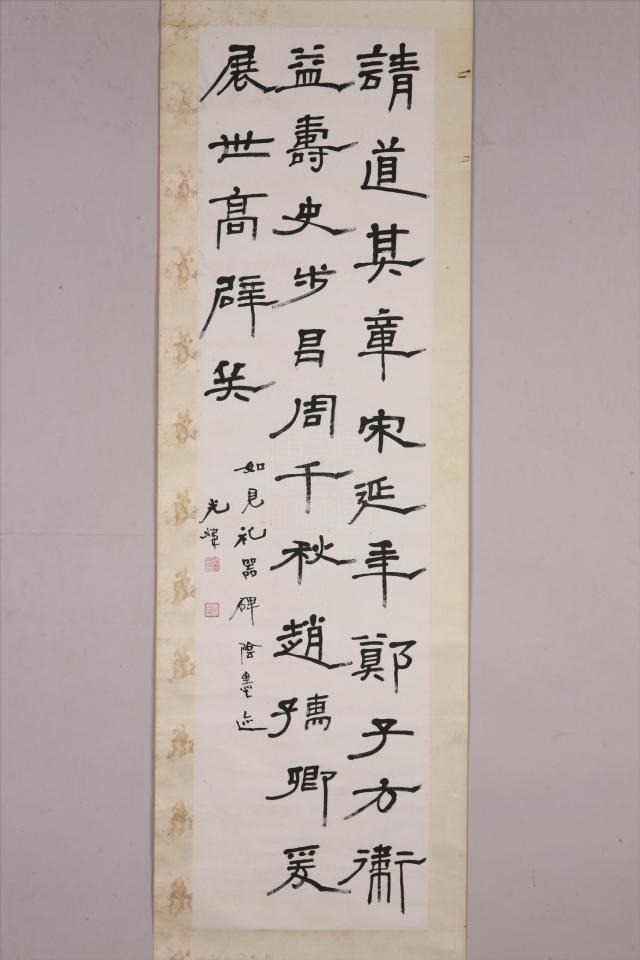 請道其章宋延年鄭子方衛
益壽史步昌周千秋趙孺卿爰
展世高辟兵
如見礼器碑陰墨迹
光煒